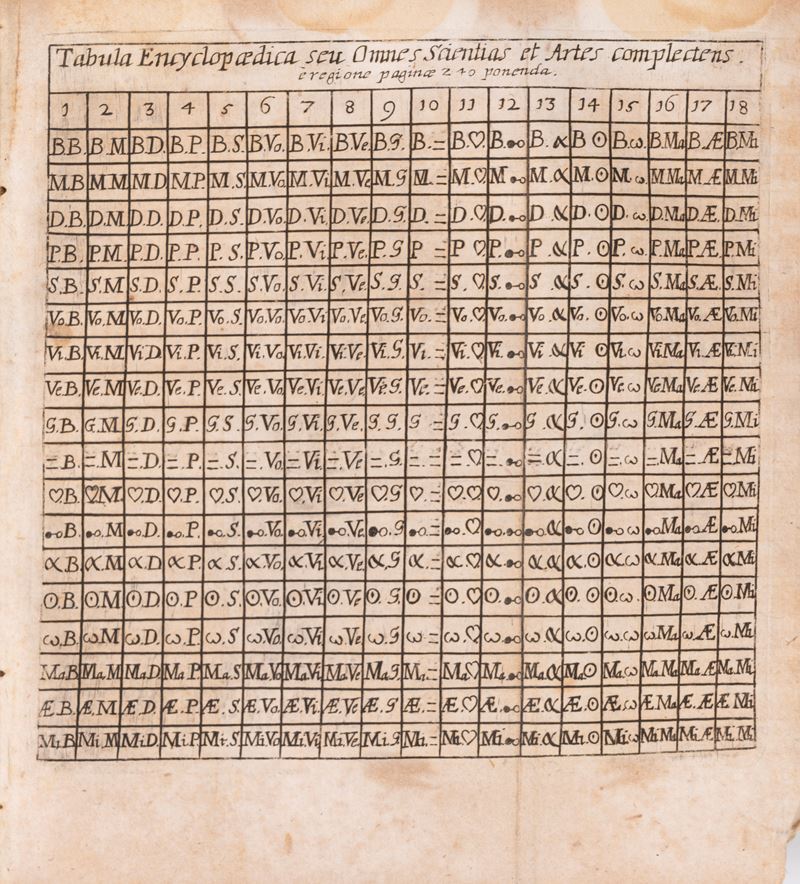 Tabula Encyclopædica seu Omnes Scientias et Artes complectens.
è regione paginæ 240 ponenda.
1 2 3 4 5 6 7 8 9 10 11 12 13 14 15 16 17 18
B.B. B.M B.D. B.P. B.S. B.Vo. B.Vi. B.Ve. B.G. B.= B.♡ B.●-o B.α B ⊙ B.ω B.Ma B.Æ B.Mi
M.B M.M M.D M.P. M.S. M.Vo. M.Vi. M.Ve. M.G M.= M.♡ M.●-o M.α M.⊙ M.ω M.Ma M.Æ M.Mi
D.B. D.M. D.D. D.P. D.S D.Vo. D.Vi. D.Ve. D.G. D.= D.♡ D.●-o D α D.⊙ D.ω D.Ma D.Æ D.Mi
P.B. P.M. P.D. P.P. P.S. P.Vo. P.Vi. P.Ve. P.G P = P ♡ P.●-o P.α P.⊙ P.ω P.Ma P.Æ P.Mi
S.B. S.M S.D. S.P. S.S. S.Vo. S.Vi. S.Ve. S.G. S.= S.♡ S.●-o S α S.⊙ S.ω S.Ma S.Æ. S.Mi
Vo.B. Vo.M. Vo.D. Vo.P. Vo.S. Vo.Vo. Vo.Vi Vo.Ve. Vo.G. Vo.= Vo.♡ Vo.●-o Vo.α Vo.⊙ Vo.ω Vo.Ma Vo.Æ Vo.Mi
Vi.B. Vi.M. Vi.D Vi.P. Vi.S. Vi.Vo. Vi.Vi. Vi.Ve. Vi.G Vi.= Vi.♡ Vi.●-o Vi.α Vi ⊙ Vi.ω Vi.Ma Vi.Æ Vi.Mi
Ve.B. Ve.M Ve.D. Ve.P. Ve.S. Ve.Vo. Ve.Vi. Ve.Ve. Ve.G. Ve.= Ve.♡ Ve.●-o Ve.α Ve.⊙ Ve.ω Ve.Ma Ve.Æ Ve.Mi
G.B. G.M. G.D. G.P. G.S. G.Vo. G.Vi. G.Ve. G.G. G.= G.♡ G.●-o G.α G.⊙ G.ω G.Ma G.Æ. G.Mi
=.B. =.M =.D =.P. =.S. =.Vo =.Vi =.Ve =.G. =.= =.♡ =.●-o =.α =.⊙ =.ω =.Ma =.Æ =.Mi
♡B. ♡M. ♡D ♡.P. ♡S ♡Vo ♡Vi ♡Ve ♡G ♡.= ♡.♡ ♡.●-o ♡.α ♡.⊙ ♡.ω ♡Ma ♡Æ ♡Mi
●-o.B. ●-o.M ●-o.D. ●-o.P. ●-o.S ●-o.Vo ●-o.Vi ●-o.Ve. ●-o.G ●-o.= ●-o.♡ ●-o.●-o ●-o.α ●-o.⊙ ●-o.ω ●-o.Ma ●-o.Æ ●-o.Mi
α.B. α.M α.D α P. α.S. α.Vo α.Vi α.Ve α.G α.= α.♡ α.●-o α.α α.⊙ α.ω α.Ma α.Æ α.Mi
⊙.B. ⊙.M ⊙.D. ⊙.P ⊙.S. ⊙.Vo ⊙.Vi ⊙.Ve ⊙.G ⊙ = ⊙.♡ ⊙.●-o ⊙.α ⊙.⊙ ⊙.ω. ⊙Ma ⊙.Æ ⊙.Mi
ω.B. ω.M ω.D. ω.P. ω.S ω.Vo ω.Vi. ω.Ve ω.G ω = ω.♡ ω.●-o ω.α ω.⊙ ω.ω ω.Ma ω.Æ ω.Mi
Ma.B. Ma.M Ma.D Ma P. Ma.S Ma.Vo Ma.Vi Ma.Ve Ma.G Ma.= Ma♡ Ma.●-o Ma.α Ma⊙ Ma.ω Ma.Ma Ma.Æ Ma.Mi
Æ.B. Æ.M Æ.D. Æ.P. Æ.S Æ.Vo. Æ.Vi. Æ.Ve Æ.G Æ.= Æ.♡ Æ.●-o Æ.α Æ.⊙ Æ.ω Æ.Ma Æ.Æ Æ Mi
Mi.B Mi.M Mi.D Mi.P Mi.S Mi.Vo Mi.Vi Mi.Ve Mi.G Mi.= Mi♡ Mi.●-o Mi.α Mi.⊙ Mi.ω Mi.Ma Mi.Æ Mi.Mi